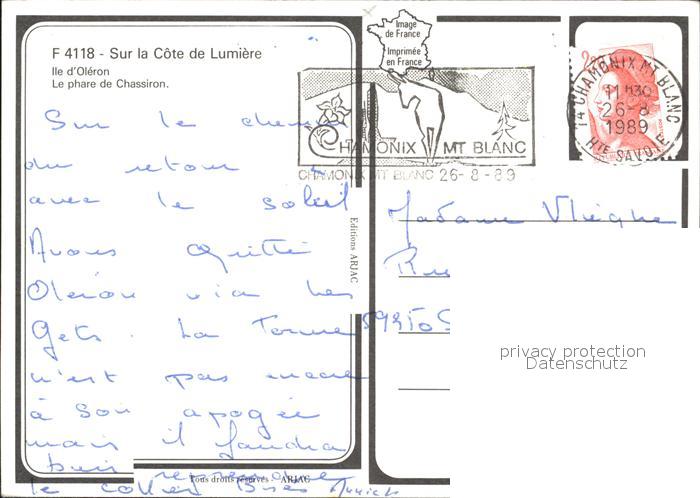 F 4118 - Sur la Côte de Lumière
Ile d'Oléron
Le phare de Chassiron.
Image
de France
Imprimée
en France
CHAMONIX MT BLANC
CHAMONIX MT BLANC 26-8-89
74 CHAMONIX MT BLANC
11H30
26-8
1989
HTE SAVOIE
Sur le chemin
du retour
avec le soleil
Avons quitté
Oléron via Les
Gets. La forme
n'est pas encore
à son apogée
mais il faudra
bien reprendre
le collier Bises
Madame
Editions ARJAC
Tous droits réservés - ARJAC
privacy protection
Datenschutz